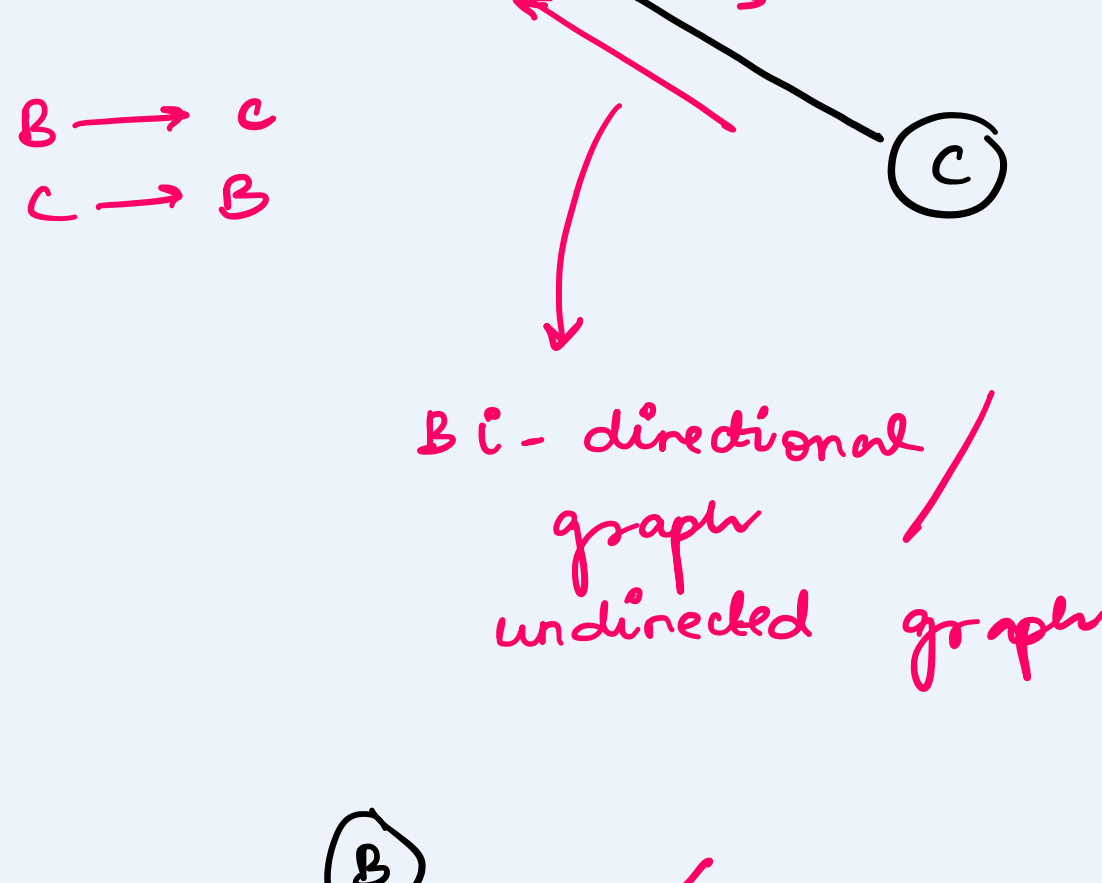 B → C
C → B
C
Bi - directional /
graph
undirected graph
B